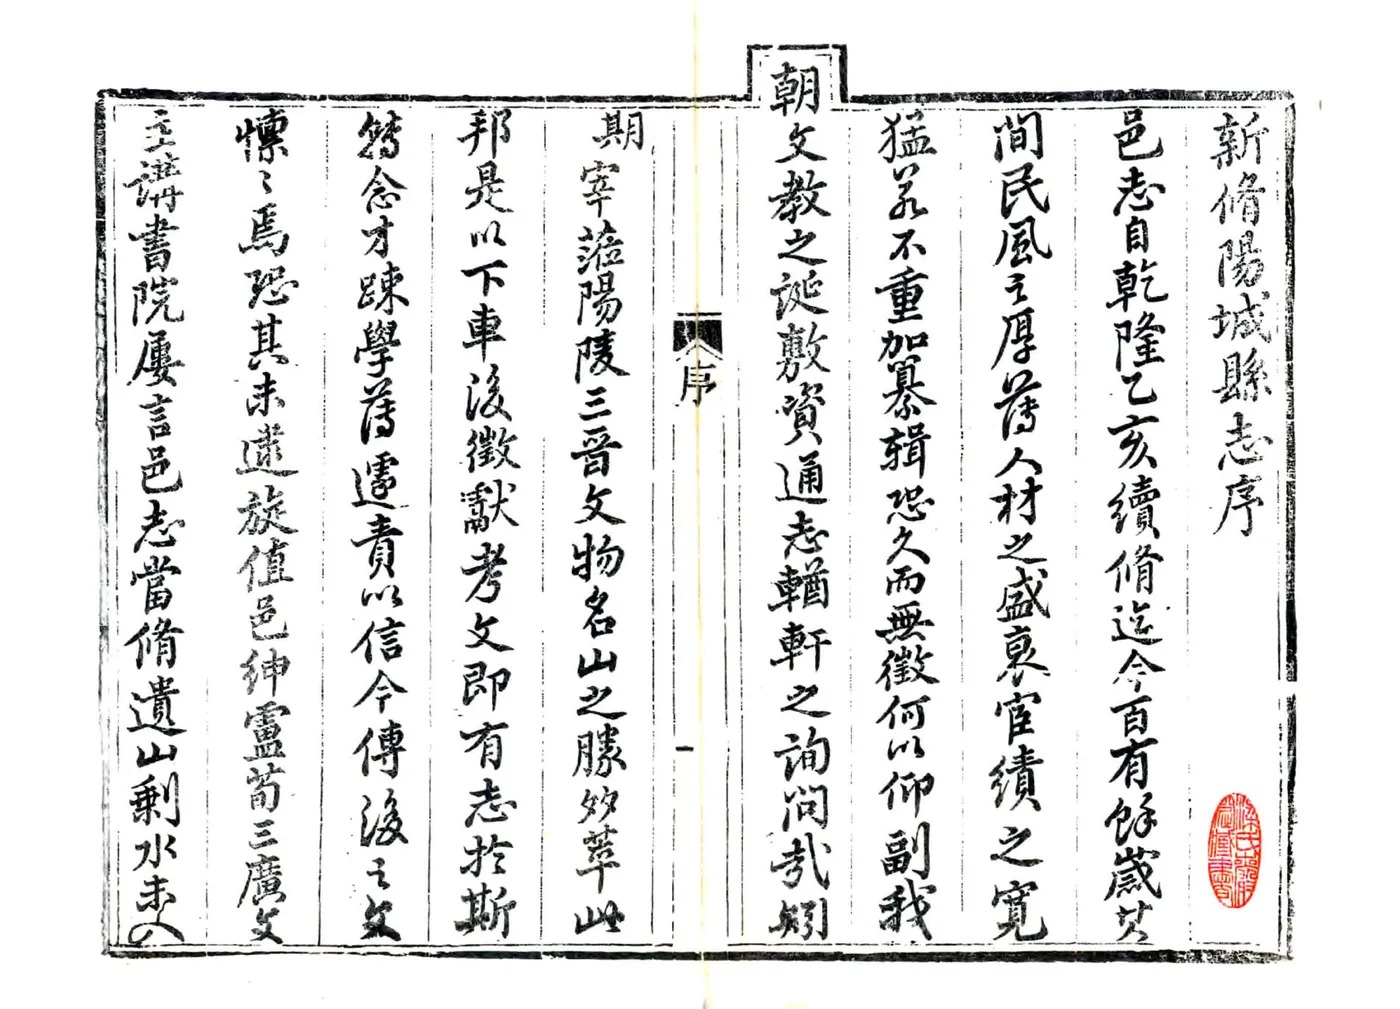 新脩陽城縣志序
邑志自乾隆乙亥續脩迄今百有餘歲其
間民風之厚薄人材之盛衰宦績之寬
猛若不重加纂輯恐久而無徵何以仰副我
朝文教之誕敷資通志輶軒之詢問哉矧
序
一
期宰蒞陽陵三晉文物名山之勝妙萃此
邦是以下車後徵獻考文即有志於斯
轉念才踈學薄遽責以信今傳後之文
懍〻焉恐其未逮旋值邑紳盧荀三廣文
主講書院屢言邑志當脩遺山剩水未入